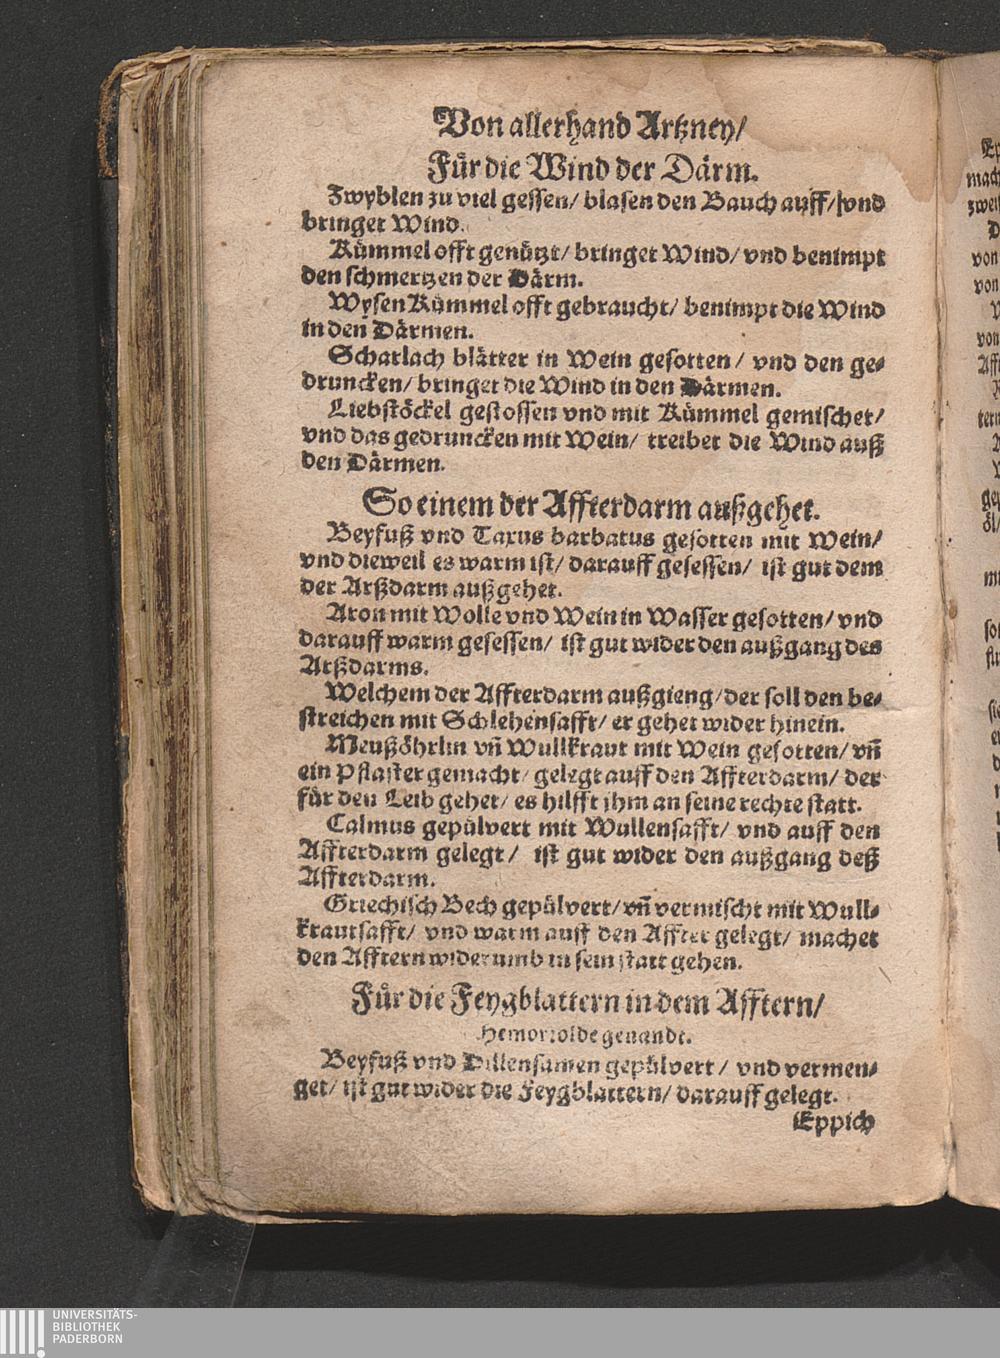 Von allerhand Artzney/
Für die Wind der Därm.
Zwyblen zu viel gessen/ blasen den Bauch auff/ vnd
bringet Wind.
Kümmel offt genützt/ bringet Wind/ vnd benimpt
den schmertzen der Därm.
Wysen Kümmel offt gebraucht/ benimpt die Wind
in den Därmen.
Scharlach blätter in Wein gesotten/ vnd den ge-
druncken/ bringet die Wind in den Därmen.
Liebstöckel gestossen vnd mit Kümmel gemischet/
vnd das gedruncken mit Wein/ treibet die Wind auß
den Därmen.
So einem der Affterdarm außgehet.
Beyfuß vnd Taxus barbatus gesotten mit Wein/
vnd dieweil es warm ist/ darauff gesessen/ ist gut dem
der Arßdarm außgehet.
Aron mit Wolle vnd Wein in Wasser gesotten/ vnd
darauff warm gesessen/ ist gut wider den außgang des
Arßdarms.
Welchem der Affterdarm außgieng/ der soll den be-
streichen mit Schlehensafft/ er gehet wider hinein.
Meußöhrlin vñ Wullkraut mit Wein gesotten/ vñ
ein Pflaster gemacht/ gelegt auff den Affterdarm/ der
für den Leib gehet/ es hilfft ihm an seine rechte statt.
Calmus gepülvert mit Wullensafft/ vnd auff den
Affterdarm gelegt/ ist gut wider den außgang deß
Affterdarm.
Griechisch Bech gepülvert/ vñ vermischt mit Wull-
krautsafft/ vnd warm auff den Affter gelegt/ machet
den Afftern widerumb in sein statt gehen.
Für die Feygblattern in dem Afftern/
Hemorroide genandt.
Beyfuß vnd Dillensamen gepülvert/ vnd vermen-
get/ ist gut wider die Feygblattern/ darauff gelegt.
Eppich
UNIVERSITÄTS-
BIBLIOTHEK
PADERBORN